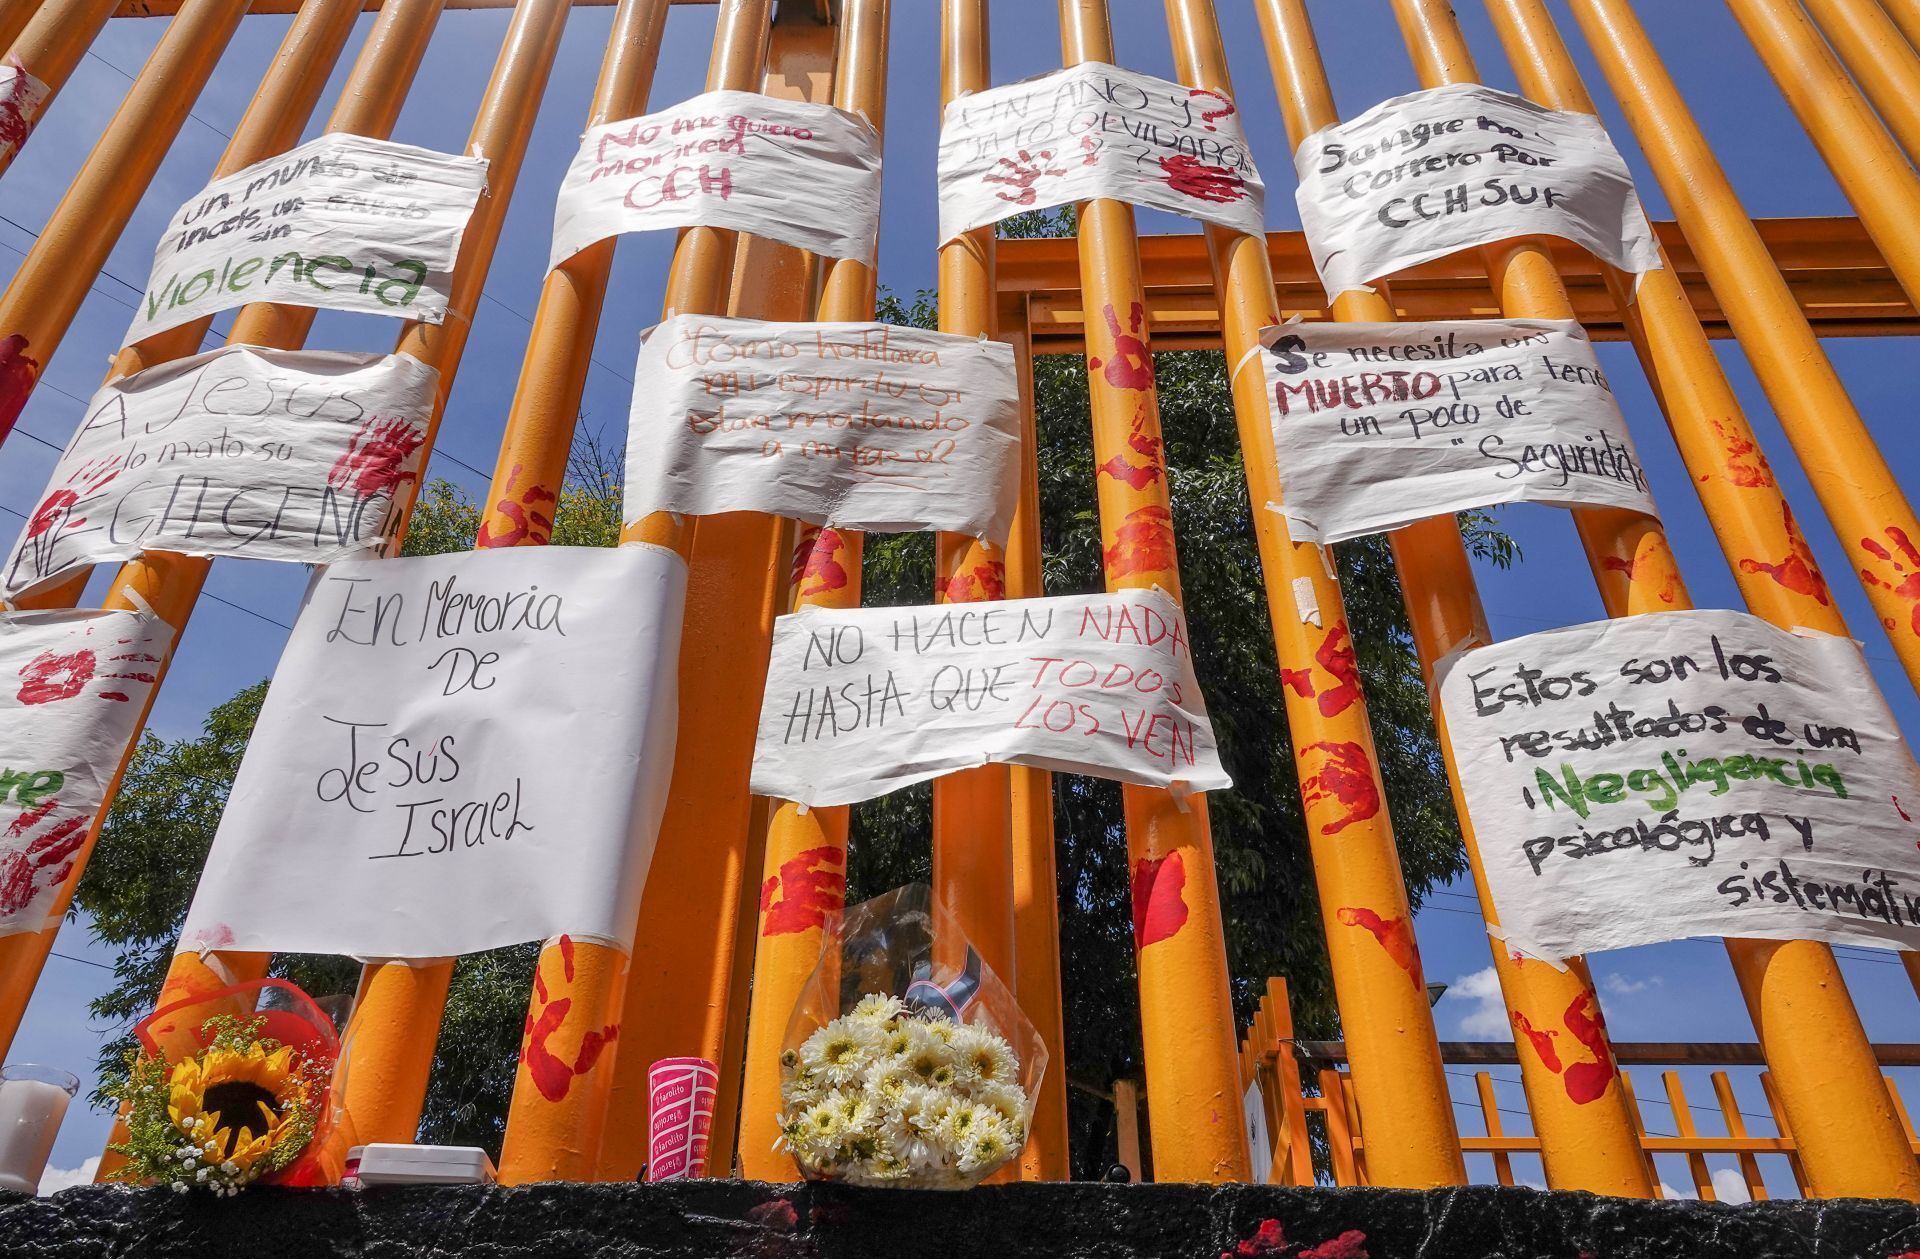 un mundo sin
incels, un mundo
sin
Violencia
No me quiero
morir en
CCH
UN AÑO Y ?
YA LO OLVIDARON
? ? ?
Sangre no
Correra Por
CCH Sur
A Jesús
lo mato su
NEGLIGENCIA
¿Cómo hablara
mi espiritu si
estan matando
a mi raza?
Se necesita un
MUERTO para tene
un poco de
"Seguridad
En Memoria
De
Jesús
Israel
NO HACEN NADA
HASTA QUE TODOS
LOS VEN
Estos son los
resultados de una
Negligencia
psicalógica y
sistemátic
re
farolito
farolito
farolito